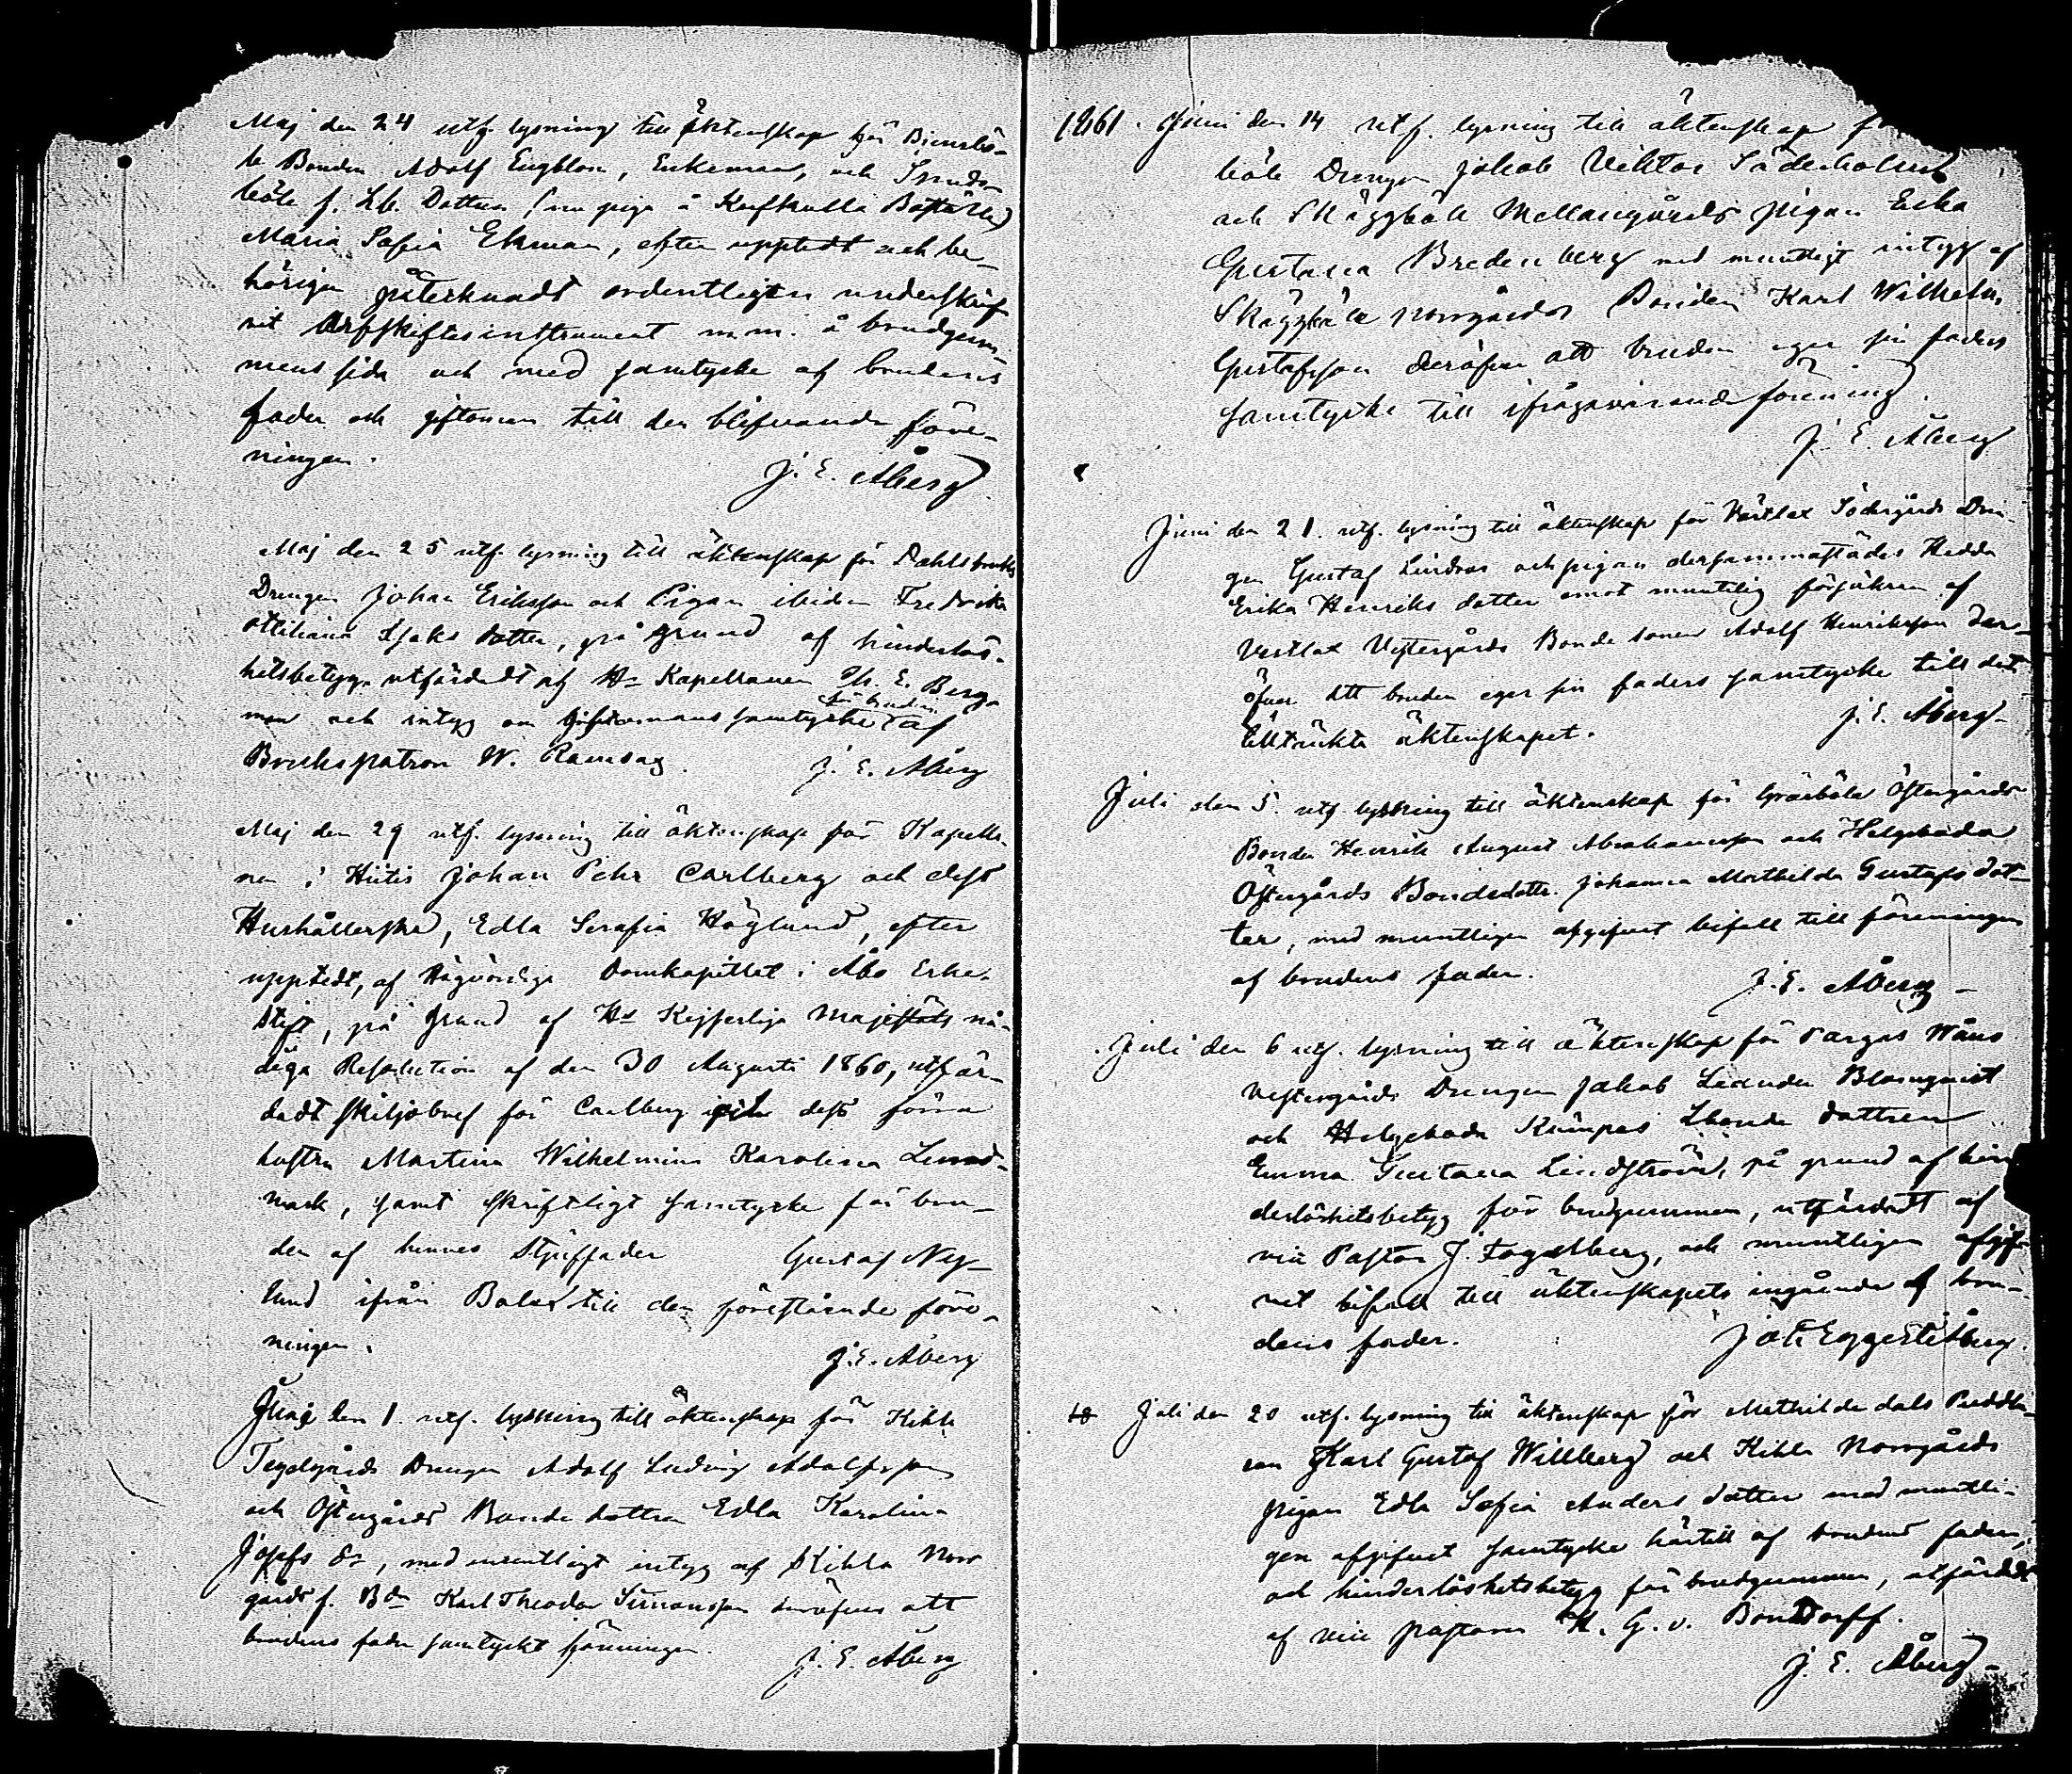 Maj den 24 utf. lysning till äktenskap för Biensbö-
le Bonden Adolf Engblom, Enkeman, och
böle f. Lb. Dottren (nu piga å Kafkulla Boställe)
Maria Sofia Ekman, efter uppteedt och be-
hörigen påtecknadt ordentligen underskrif
vit Arfskiftesinstrument m.m. å brudgum-
mens sida och med samtycke af brudens
fader och giftoman till den blifvande före-
ningen.
J. E. Åberg
Maj den 25 utf. lysning till äktenskap för Dahlsbruks
Drengen Johan Eriksson och Pigan ibidem Fredrika
Ottiliana Isaks dotter, på grund af hinderlös-
hetsbetyg utfärdadt af Hr Kapellanen Th. E. Berg-
för bruden
man och intyg om giftomans samtycke af
Brukspatron W. Ramsay.
J. E. Åberg
Maj den 29 utf. lysning till äktenskap för Kapella-
nen i Hitis Johan Pehr Carlberg och dess
Hushållerska, Edla Serafia Höglund, efter
upptedt, af Högvördige Domkapitlet i Åbo Erke-
stift, på grund af Hs Kejserliga Majestäts nå-
diga Resolution af den 30 Augusti 1860, utfär-
dadt skiljobref för Carlberg dess förra
hustru Martina Wilhelmina Karolina
mark, samt skriftligt samtycke för bru-
den af hennes Styffader Gustaf Ny-
lund ifrån till den förestående före-
ningen.
J. E. Åberg
Junij den 1. utf. lysning till äktenskap för Kihla
Tegelgårds Drengen Adolf Ludvig Adolfsson
och Östergårds Bondedottren Edla Karolina
Josefs dr, med muntligt intyg af Kihla Norr
gårds f. Bdn Karl Theodor Simonsson deröfver att
brudens fader samtyckt föreningen.
J. E. Åberg
1861. Juni den 14 utf. lysning till äktenskap f
böle Drengen Jakob Viktor Söderholm
och Skäggböle Mellangårds pigan Erika
Gustava Bredenberg med muntligt intyg af
Skäggböle Norrgårds Bonden Karl Wilhelm
Gustafsson deröfver att bruden eger sin faders
samtycke till ifrågavarande förening.
J. E. Åberg
Juni den 21. utf. lysning till äktenskap för Västlax Södergårds Dren-
gen Gustaf Lindroos och pigan dersammastädes Hedda
Erika Henriks dotter emot muntelig försäkran af
Vestlax Vestergårds Bonde sonen Adolf Henriksson der-
öfver att bruden eger sin faders samtycke till det
tilltänkta äktenskapet.
J. E. Åberg
Juli den 5. utf. lysning till äktenskap för Gräsböle Östergårds
Bonden Henrik August Abrahamsson och Helgeboda
Östergårds Bondedotter Johanna Mathilda Gustafs dot-
ter, med muntligen afgifvet bifall till föreningen
af brudens fader.
J. E. Åberg
Juli den 6 utf. lysning till äktenskap för Pargas Wåno
Vestergårds Drengen Jakob Leander Blomqvist
och Helgeboda Kämpas Lbonde dottren
Emma Gustava Lindström, på grund af hin
derlöshetsbetyg för brudgummen, utfärdadt af
vice Pastor J. Fogelberg, och muntligen afgif-
vet bifall till äktenskapets ingående af bru-
dens fader.
Joh Eggert Åberg.
Juli den 20 utf. lysning till äktenskap för Mathildedals Puddla-
ren Karl Gustaf Willberg och Kihla Norrgårds
pigan Edla Sofia Anders dotter med muntli-
gen afgifvet samtycke härtill af brudens fader,
och hinderlöshetsbetyg för brudgummen, utfärdadt
af vice pastorn K. G. v. Bonsdorff.
J. E. Åberg